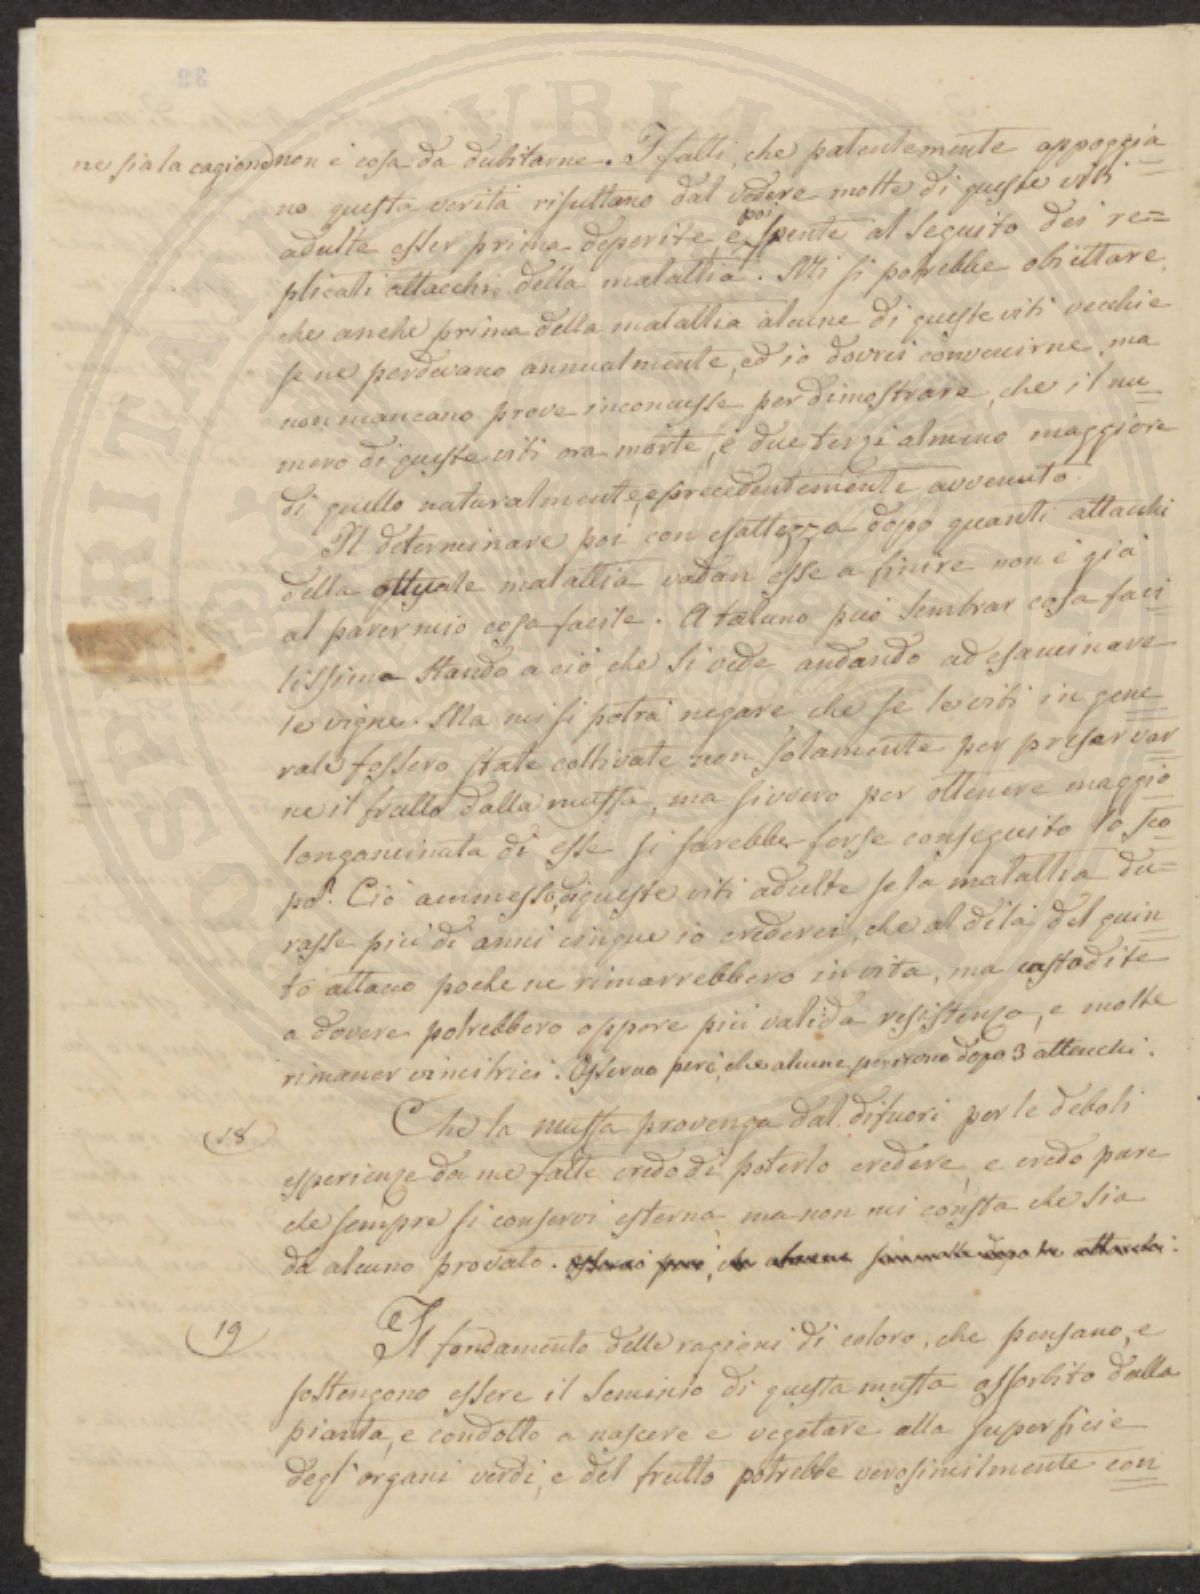 ne sia la cagione non è cosa da dubitarne. I fatti, che patentemente appoggia
no questa verità risultano dal vedere molte di queste viti
adulte esser prima deperite, e poi spente al seguito dei re=
plicati attacchi della malattia. Mi si potrebbe obiettare,
che anche prima della malattia alcune di queste viti vecchie
se ne perdevano annualmente, ed io dovrei convenirne, ma
non mancano prove inconcusse per dimostrare, che il nu
mero di queste viti ora morte, è due terzi almeno maggiore
di quello naturalmente, e precedentemente avvenuto.
Il determinare poi con esattezza dopo quanti attacchi
della attuale malattia vadan esse a finire non è già
al parer mio cosa facile. A taluno può sembrar cosa faci
lissima stando a ciò, che si vede andando ad esaminare
le vigne. Ma mi si potrà negare che se le viti in gene
rale fossero state coltivate non solamente per preservar
ne il frutto dalla muffa, ma sivvero per ottenere maggio
longaminata di esse si sarebbe forse conseguito lo sco
po? Ciò ammesso, di queste viti adulte se la malattia du=
rasse più di anni cinque io crederei, che al di là del quin
to attacco poche ne rimarrebbero in vita, ma custodite
a dovere potrebbero oppore più valida resistenza, e molte
rimaner vincitrici. Osservo però, che alcune perirono dopo 3 attacchi.
18
Che la muffa provenga dal difuori per le deboli
esperienze da me fatte credo di poterlo credere, e credo pure
che sempre si conservi esterna, ma non mi consta che sia
da alcuno provato. Osservai però, che alcune attacchi.
19
Il fondamento delle ragioni di coloro, che pensano, e
sostengono essere il seminio di questa muffa assorbito dalla
pianta, e condotto a nascere e vegetare alla superficie
degl'organi verdi, e del frutto potrebbe verosimilmente con